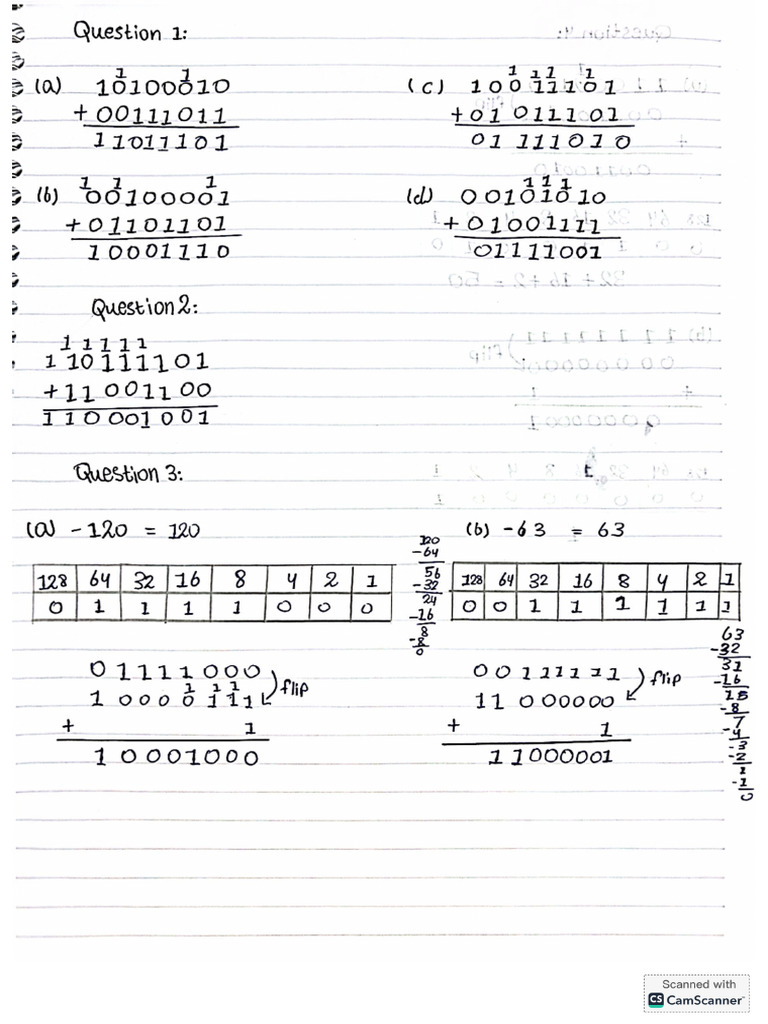 Question 1:
(a)
1 1
10100010
+ 00111011
11011101
(c)
1 1 1 1
10011101
+01011101
01111010
(b)
1 1 1
00100001
+01101101
10001110
(d)
1 1 1
00101010
+01001111
01111001
Question 2:
1 1 1 1 1
110111101
+11001100
110001001
Question 3:
(a) -120 = 120
128 64 32 16 8 4 2 1
0 1 1 1 1 0 0 0
120
-64
56
-32
24
-16
8
-8
0
01111000
1 1 1
10000111 flip
+ 1
10001000
(b) -63 = 63
128 64 32 16 8 4 2 1
0 0 1 1 1 1 1 1
63
-32
31
-16
15
-8
7
-4
-3
-2
1
-1
0
00111111
11000000 flip
+ 1
11000001
Scanned with
CS CamScanner